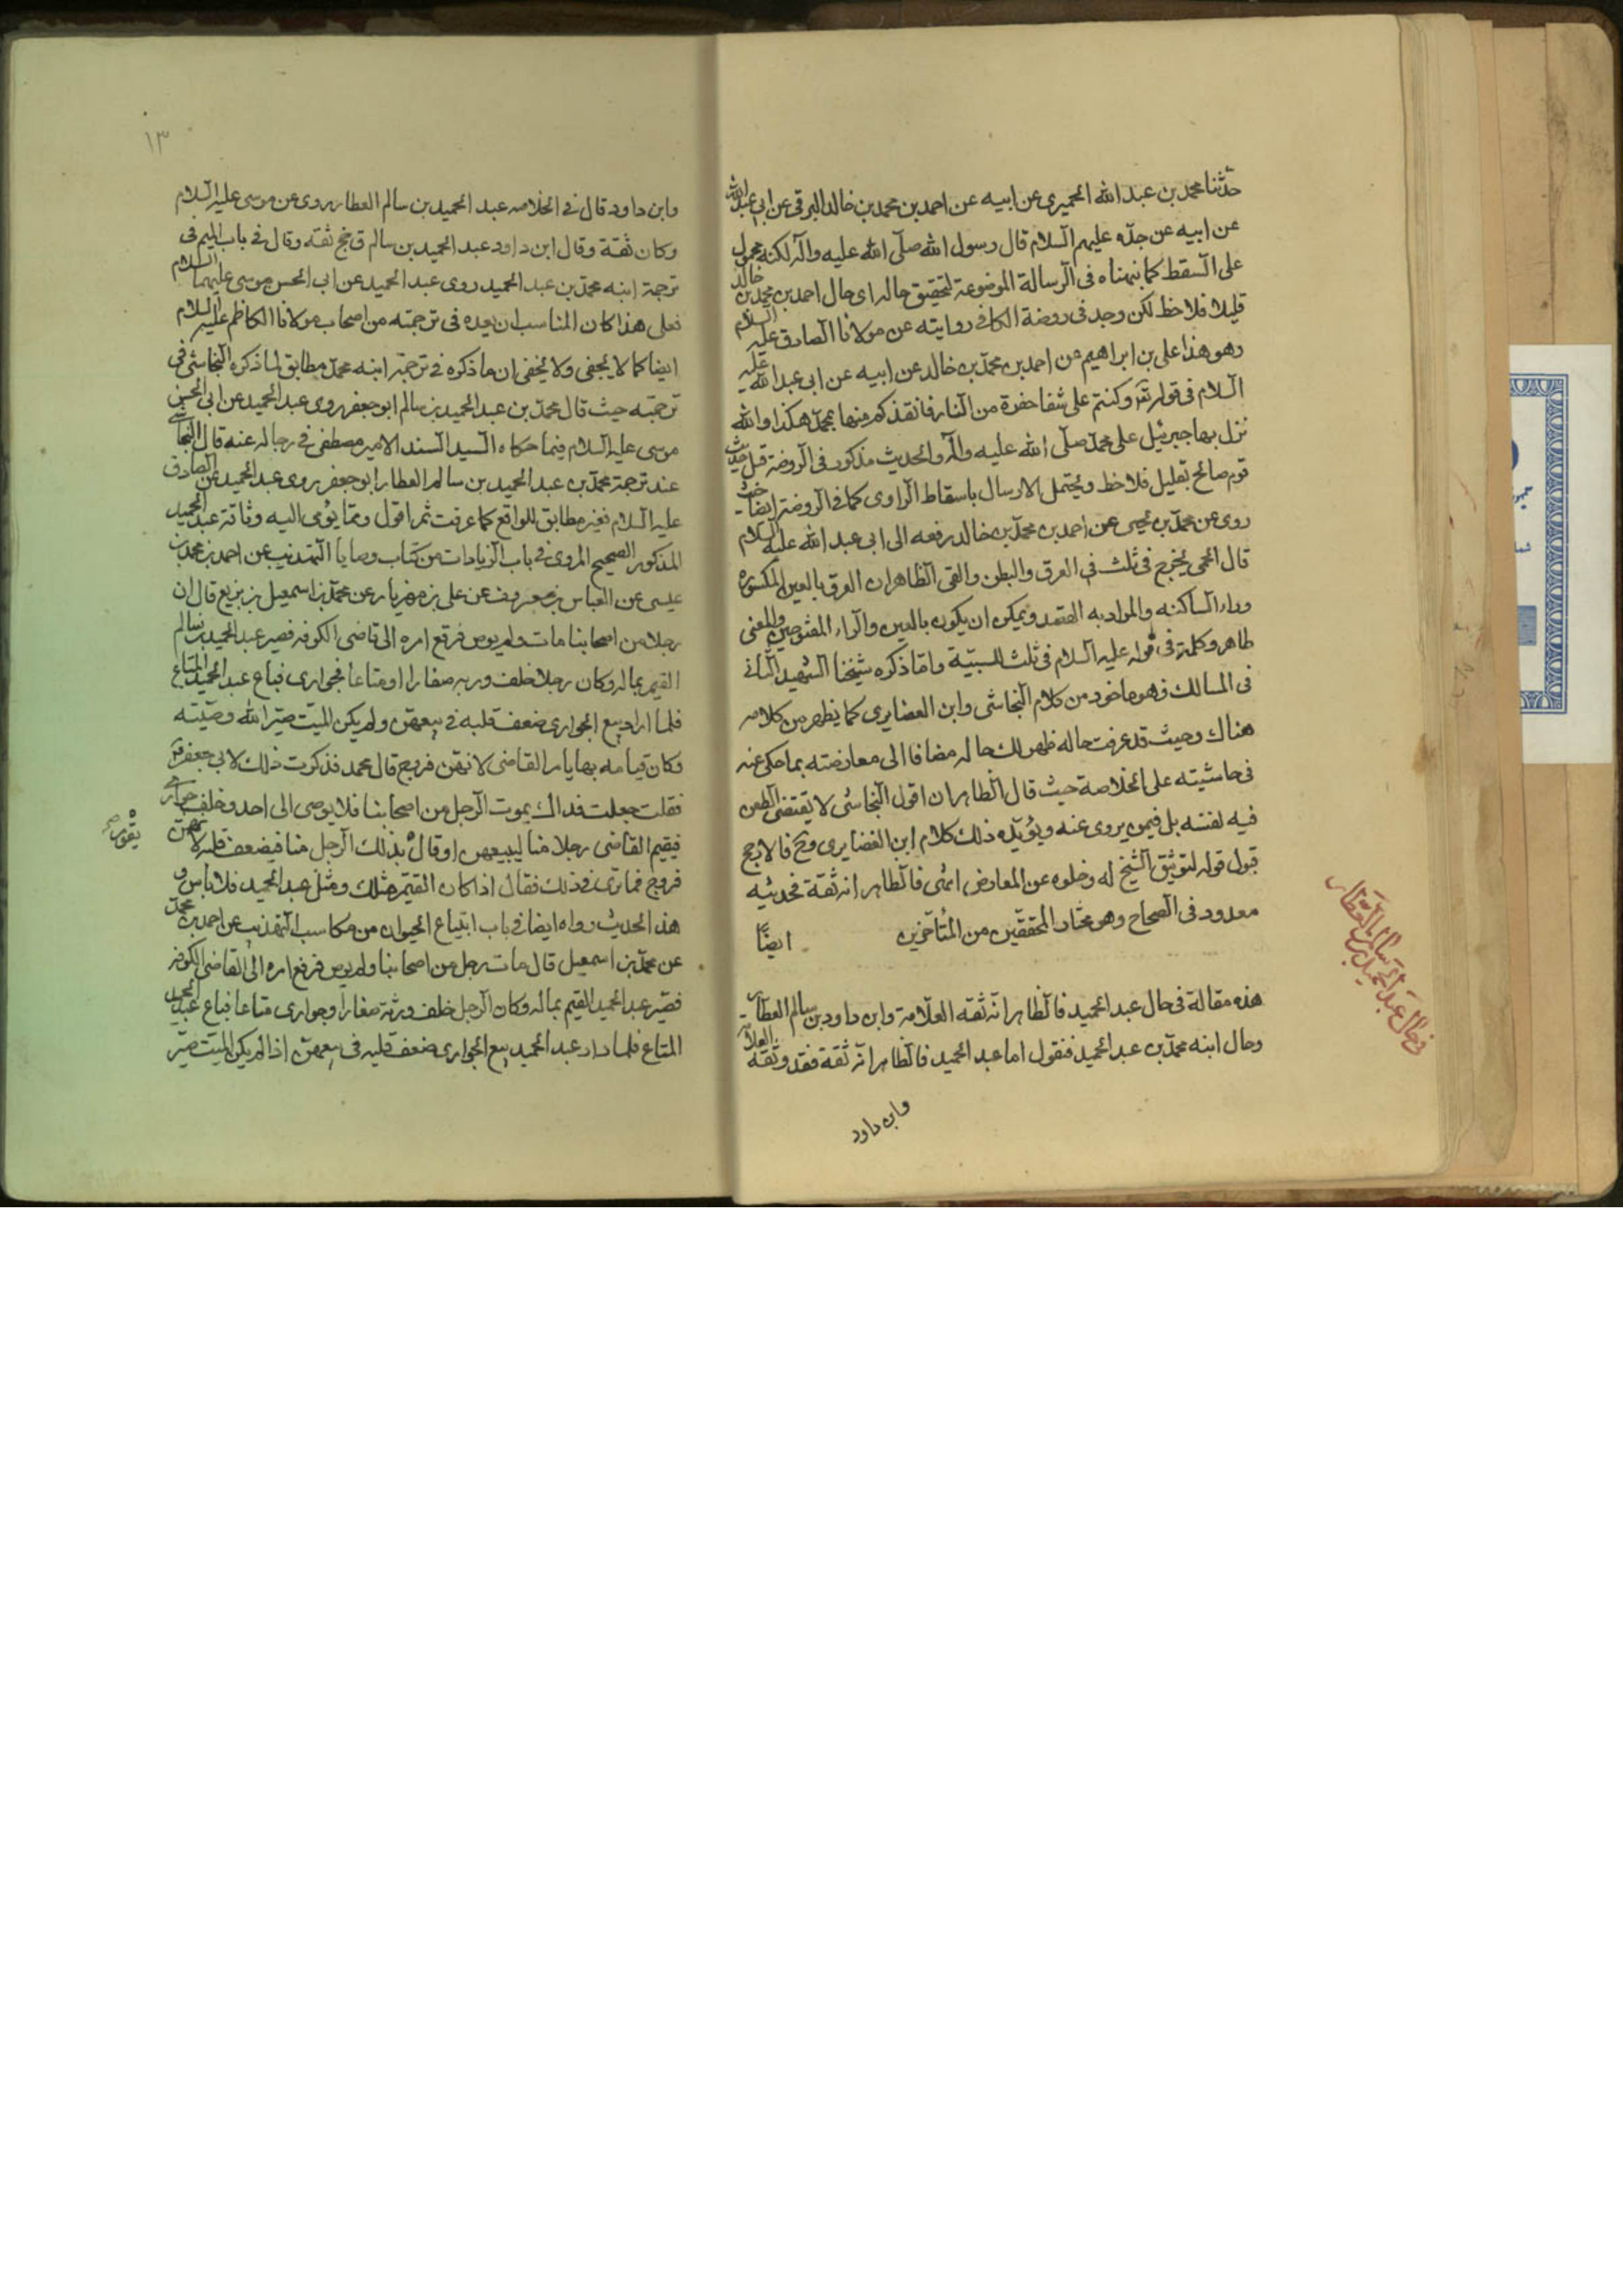 حدثنا محمد بن عبد الله الحميري عن ابيه عن احمد بن محمد بن خالد البرقي عن ابي عبد الله
عن ابيه عن جده عليهم السلام قال رسول الله صلى الله عليه وآله لكنه محمول
على السقط كما نبهناه في الرسالة الموضوعة لتحقيق حاله اى حال احمد بن محمد بن خالد
قليلا فلاحظ لكن وجد في روضة الكافي روايته عن مولانا الصادق عليه السلام
وهو هذا على بن ابراهيم عن احمد بن محمد بن خالد عن ابيه عن ابى عبد الله عليه
السلام في قوله تع وكنتم على شفا حفرة من النار فانقذكم منها بمحمد هكذا والله
نزل بها جبرئيل على محمد صلى الله عليه وآله والحديث مذكور في الروضة قبل حديث
قوم صالح بقليل فلاحظ ويحتمل الارسال باسقاط الراوى كما في الروضة ايضا حيث
روى عن محمد بن يحيى عن احمد بن محمد بن خالد رفعه الى ابى عبد الله عليه السلام
قال الحمى يخرج في ثلث في العرق والبطن والقى الظاهر ان العرق بالعين المكسورة
وراء الساكنة والمراد به الفصد ويمكن ان يكون بالعين والراء المفتوحين والمعنى
ظاهر وكلمة في قوله عليه السلام في ثلث للسببية واما ذكره شيخنا الشهيد الثانى
فى المسالك فهو ماخوذ من كلام النجاشى وابن الغضايرى كما يظهر من كلامه
هناك وحيث قد عرفت حاله ظهر لك حاله مضافا الى معارضته بما حكى عنه
فى حاشيته على الخلاصة حيث قال الظاهر ان قول النجاشى لا يقتضى الطعن
فيه نفسه بل فيمن يروى عنه ويؤيد ذلك كلام ابن الغضايرى وح فالارجح
قبول قوله لتوثيق الشيخ له وخلوه عن المعارض انتهى فالظاهر انه ثقة فحديثه
معدود فى الصحاح وهو مختار المحققين من المتأخرين ايضًا
هذه مقالة في حال عبد الحميد بن سالم العطار
وحال ابنه محمد بن عبد الحميد فنقول اما عبد الحميد فالظاهر انه ثقة فقد وثقه العلامة
وابن داود
فى حال عبد الحميد بن سالم العطار
١٣
وابن داود قال في الخلاصه عبد الحميد بن سالم العطار روى عن موسى عليه السلام
وكان ثقة وقال ابن داود عبد الحميد بن سالم ق جخ ثقه وقال في باب الميم فى
ترجمة ابنه محمد بن عبد الحميد روى عبد الحميد عن ابى الحسن موسى عليهما السلام
فعلى هذا كان المناسب ان يعده في ترجمته من اصحاب مولانا الكاظم عليه السلام
ايضا كما لا يخفى ولا يخفى ان ما ذكره في ترجمة ابنه محمد مطابق لما ذكره النجاشى فى
ترجمته حيث قال محمد بن عبد الحميد بن سالم ابو جعفر روى عبد الحميد عن ابى الحسن
موسى عليه السلام فيما حكاه السيد السند الامير مصطفى في رجاله عنه قال النجاشى
عند ترجمة محمد بن عبد الحميد بن سالم العطار ابو جعفر روى عبد الحميد عن الصادق
عليه السلام فغير مطابق للواقع كما عرفت ثم اقول ومما يؤمى اليه وثاقة عبد الحميد
المذكور الصحيح المروى في باب الزيادات من كتاب وصايا التهذيب عن احمد بن محمد بن
عيسى عن العباس بن معروف عن على بن مهزيار عن محمد بن اسمعيل بن بزيع قال ان
رجلا من اصحابنا مات ولم يوص فرفع امره الى قاضى الكوفه فصير عبد الحميد بن سالم
القيم بماله وكان رجلا خلف ورثه صغارا ومتاعا فجوارى فباع عبد الحميد المتاع
فلما اراد بيع الجوارى ضعف قلبه في بيعهن ولم يكن الميت صير الله وصيته
وكان قيامه بها بامر القاضى لانهن فروج قال محمد فذكرت ذلك لابى جعفر
فقلت جعلت فداك يموت الرجل من اصحابنا فلا يوصى الى احد وخلف جوارى
فيقيم القاضى رجلا منا ليبيعهن او قال بذلك الرجل منا فيضعف قلبه لانهن
يقوم
فروج فما ترى في ذلك فقال اذا كان القيم مثلك ومثل عبد الحميد فلا باس و
هذا الحديث رواه ايضا في باب ابتياع الحيوان من مكاسب التهذيب عن احمد بن محمد
عن محمد بن اسمعيل قال مات رجل من اصحابنا ولم يوص فرفع امره الى القاضى الكوفه
فصير عبد الحميد القيم بماله وكان الرجل خلف ورثة صغارا وجوارى متاعا فباع عبد الحميد
المتاع فلما اراد عبد الحميد بيع الجوارى ضعف قلبه فى بيعهن اذا لم يكن الميت صير